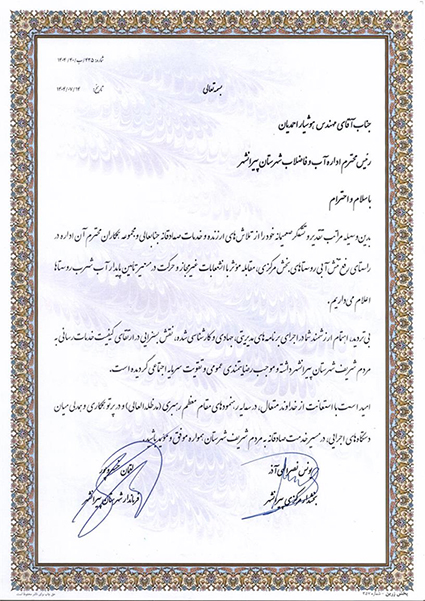 شماره: ۲۳۵/ب/۱۴۰۴/۳۰
بسمه تعالی
تاریخ: ۱۴۰۴/۰۷/۱۴
جناب آقای مهندس هوشیار احمدیان
رئیس محترم اداره آب و فاضلاب شهرستان پیرانشهر
با سلام و احترام
بدین وسیله مراتب تقدیر و تشکر صمیمانه خود را از تلاش های ارزنده و خدمات صادقانه جنابعالی و مجموعه همکاران محترم آن اداره در
راستای رفع تنش آبی روستاهای بخش مرکزی، مقابله مؤثر با انشعابات غیرمجاز و حرکت در مسیر تأمین پایدار آب شرب روستاها
اعلام می داریم.
بی تردید، اهتمام ارزشمند شما در اجرای برنامه های مدیریتی، جهادی و کارشناسی شده، نقش بسزایی در ارتقای کیفیت خدمات رسانی به
مردم شریف شهرستان پیرانشهر داشته و موجب رضایتمندی عمومی و تقویت سرمایه اجتماعی گردیده است.
امید است با استعانت از خداوند متعال، در سایه رهنمودهای مقام معظم رهبری (مدظله العالی) و در پرتو همکاری و همدلی میان
دستگاه های اجرایی، در مسیر خدمت صادقانه به مردم شریف شهرستان همواره موفق و مؤید باشید.
یونس نصرالهی آذر
بخشدار مرکزی پیرانشهر
لقمان خسروپور
فرماندار شهرستان پیرانشهر
پخش زرین - شماره